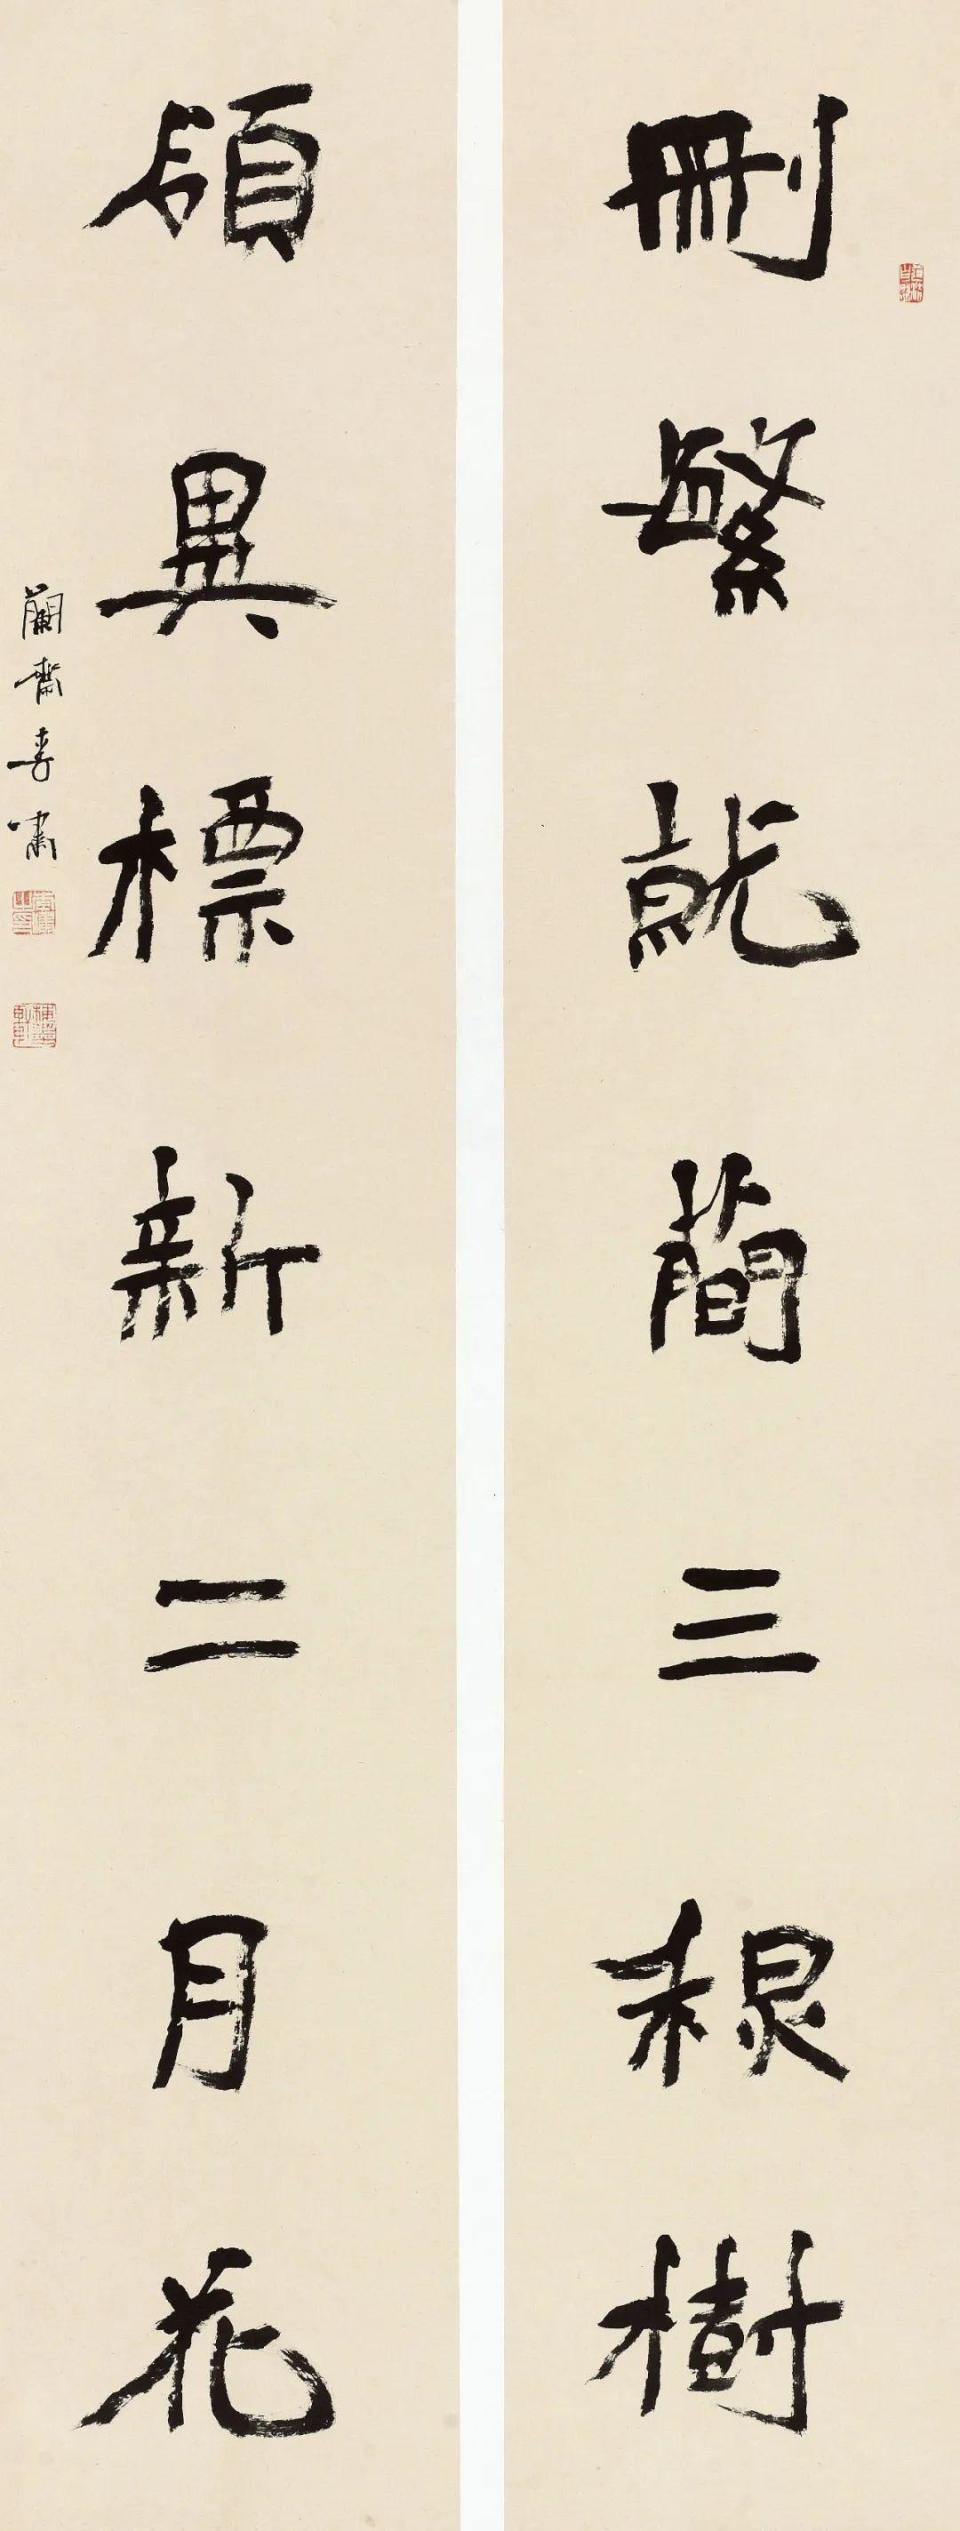 刪繁就簡三秋樹
領異標新二月花
蘭齋李嘯